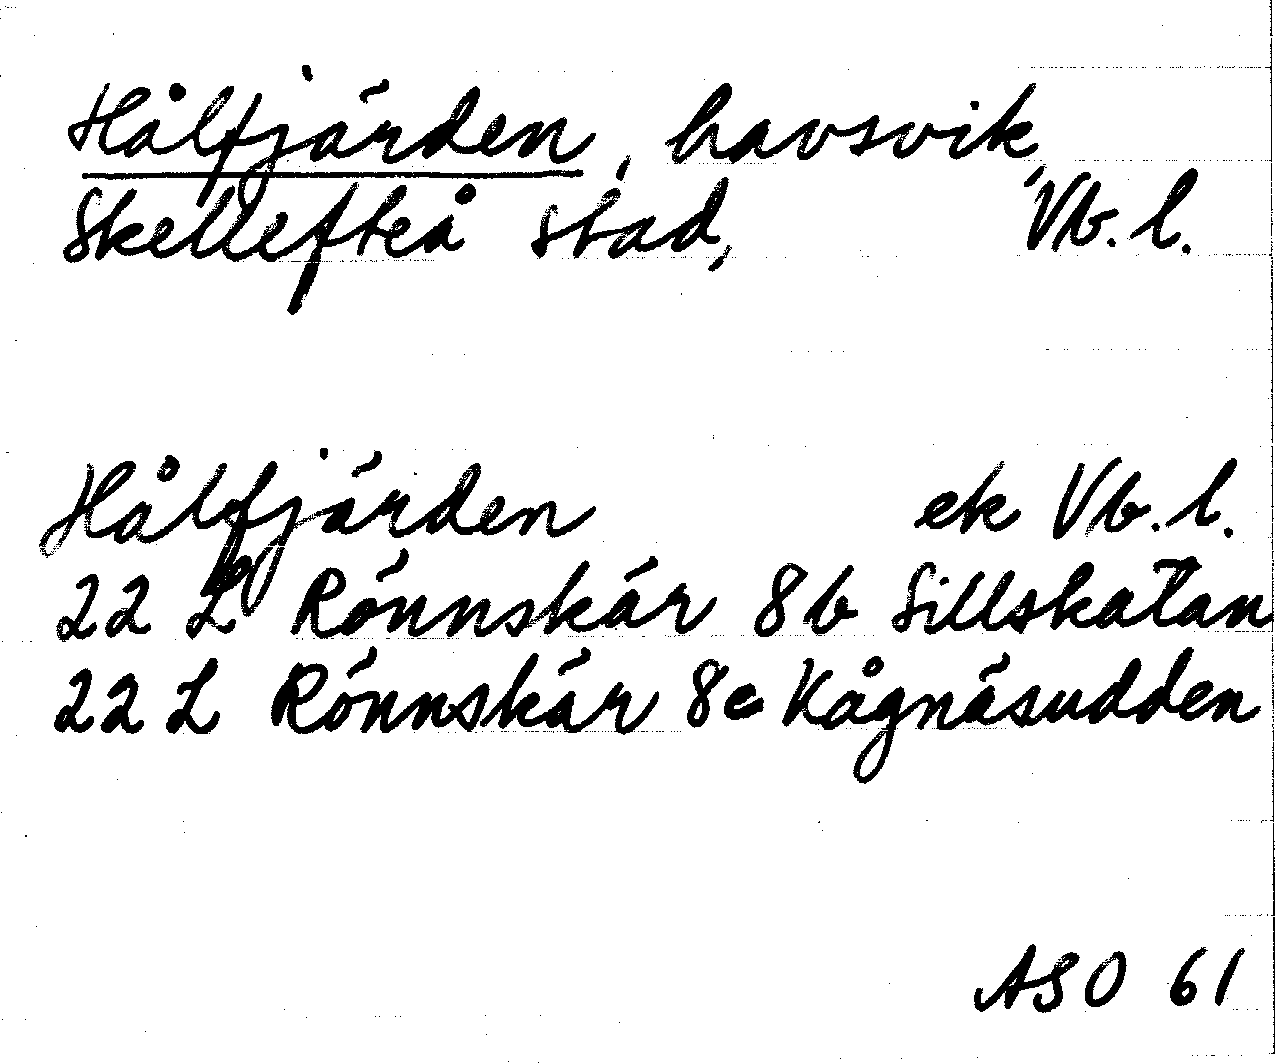 Hålfjärden, havsvik,
Skellefteå stad, Vb. l.
Hålfjärden ek Vb. l.
22 L Rönnskär 8 b Sillskatan
22 L Rönnskär 8 c Kågnäsudden
ASO 61